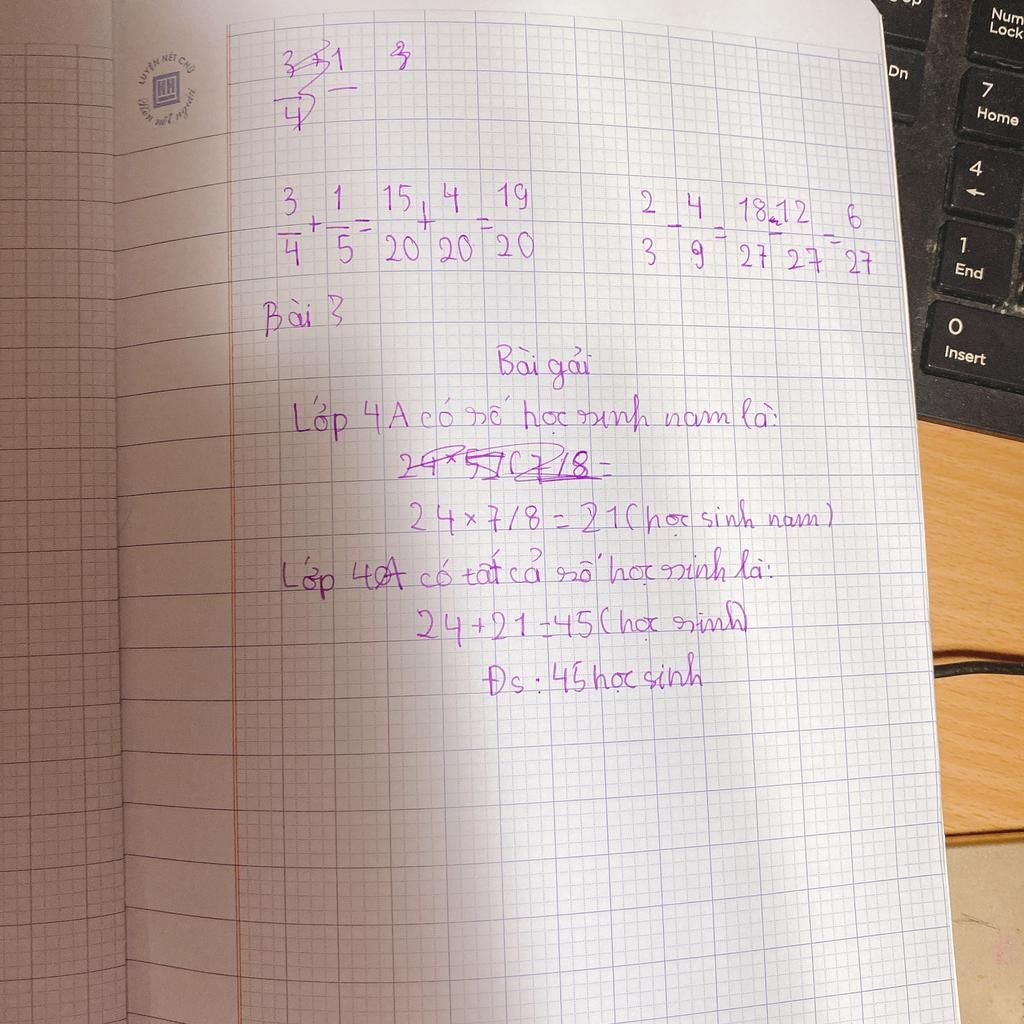 LUYỆN NÉT CHỮ
KH
Rèn nết người
3/4 + 1/5 = 15/20 + 4/20 = 19/20
2/3 - 4/9 = 18/27 - 12/27 = 6/27
Bài 3
Bài gải
Lớp 4A có số học sinh nam là:
24 × 7/8 = 21 (học sinh nam)
Lớp 4A có tất cả số học sinh là:
24 + 21 = 45 (học sinh)
Đs : 45 học sinh
Num
Lock
Dn
7
Home
4
←
1
End
0
Insert